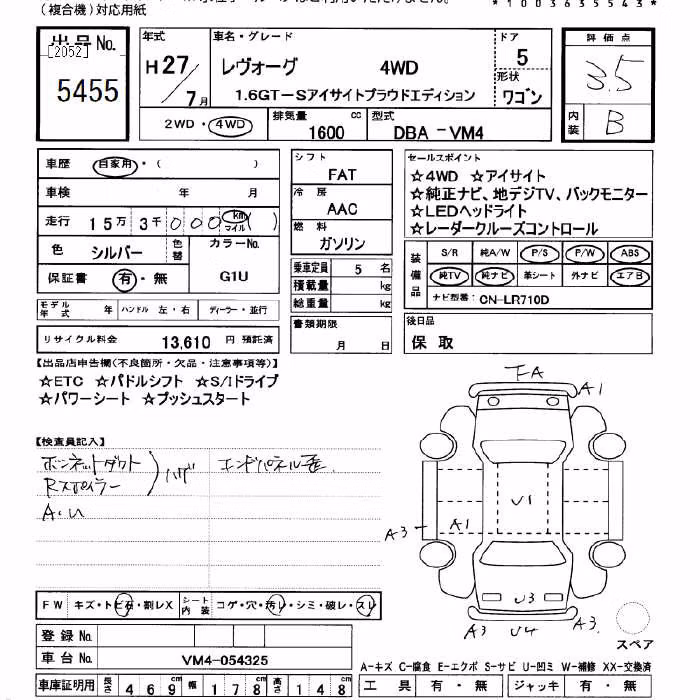 (複合機)対応用紙
*1003635543*
出品No. [2052] 5455
年式 H27/7月
車名・グレード レヴォーグ 4WD
1.6GT-Sアイサイトプラウドエディション
ドア 5
形状 ワゴン
評価点 3.5
内装 B
2WD・4WD 排気量 1600 cc 型式 DBA-VM4
車歴 自家用・( )
車検 年 月
走行 15万3千000 km マイル ( )
色 シルバー 色替 カラーNo. G1U
保証書 有・無
モデル年式 年 ハンドル 左・右 ディーラー・並行
リサイクル料金 13,610 円 預託済
シフト FAT
冷房 AAC
燃料 ガソリン
乗車定員 5 名
積載量 kg
総重量 kg
書類期限 月 日
セールスポイント
☆4WD ☆アイサイト
☆純正ナビ、地デジTV、バックモニター
☆LEDヘッドライト
☆レーダークルーズコントロール
装備品 S/R 純A/W P/S P/W ABS
純TV 純ナビ 革シート 外ナビ エアB
ナビ型番: CN-LR710D
後日品
保 取
【出品店申告欄(不良箇所・欠品・注意事項等)】
☆ETC ☆パドルシフト ☆S/Iドライブ
☆パワーシート ☆プッシュスタート
【検査員記入】
ボンネットダクト
Rスポイラー ) ハゲ
A・U
エンドパネル歪
FA
A1
U1
A3
A1
U3
A3
U4
A3
スペア
FW キズ・トビ石・割レX シート内装 コゲ・穴・汚レ・シミ・破レ・スレ
登録No.
車台No. VM4-054325
車庫証明用 長さ 469cm 幅 178cm 高さ 148cm
A-キズ C-腐食 E-エクボ S-サビ U-凹ミ W-補修 XX-交換済
工具 有・無 ジャッキ 有・無